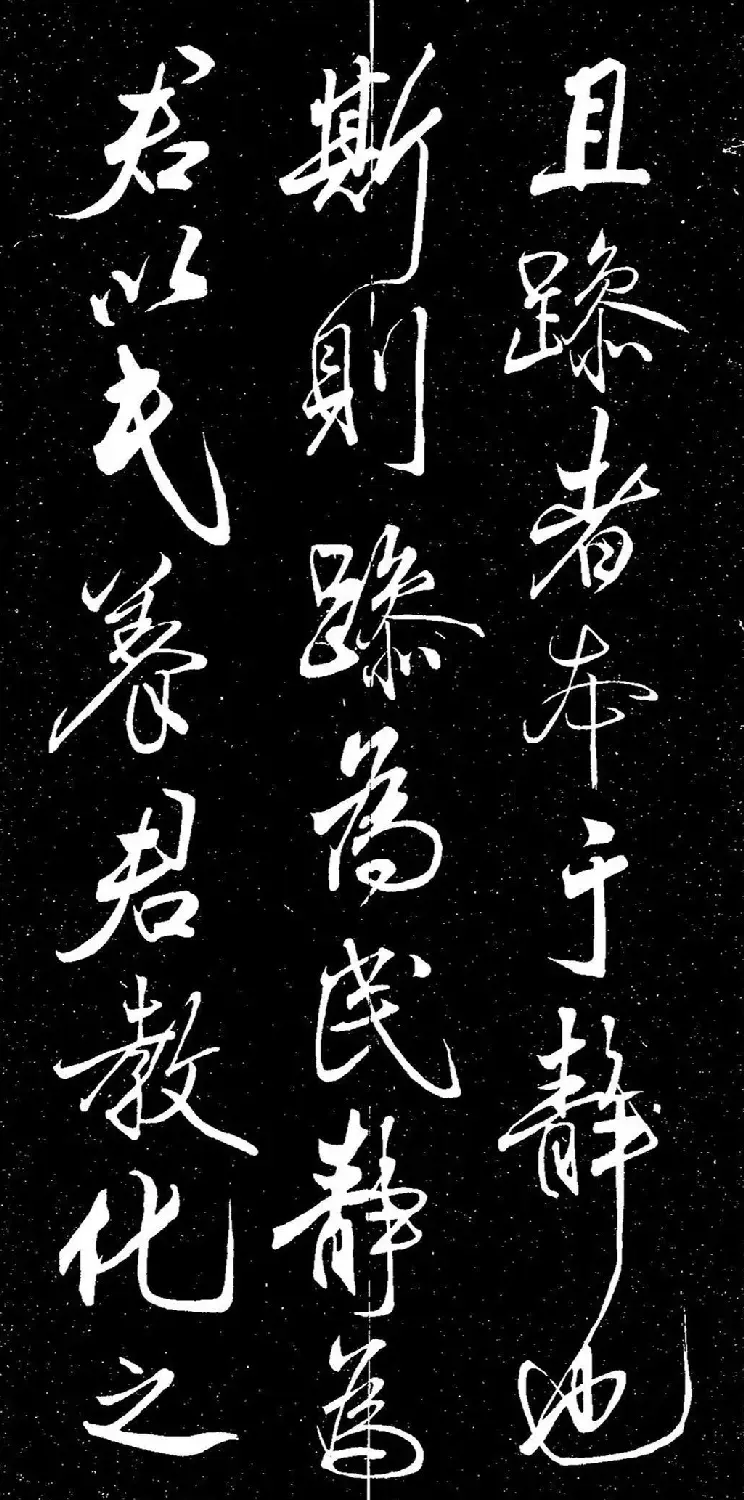 且躁者本于静也
斯則躁為民静為
君以民養君教化之